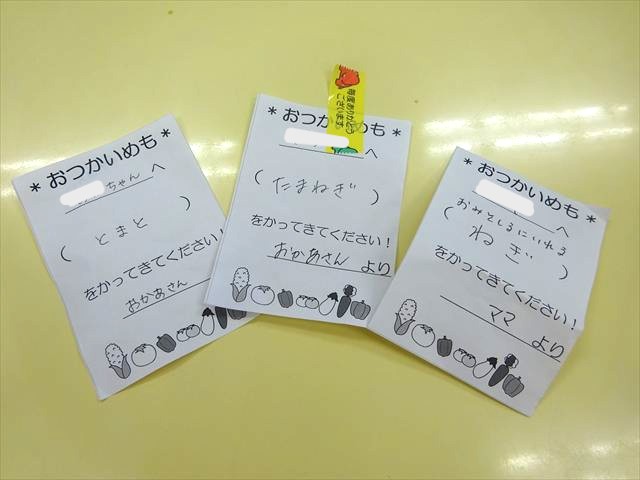 * おつかいめも *
ちゃんへ
( とまと )
をかってきてください!
おかあさん
毎度ありがとう
ございます。
* おつかいめも *
へ
( たまねぎ )
をかってきてください!
おかあさん より
* おつかいめも *
へ
おみそしるにいれる
( ねぎ )
をかってきてください!
ママ より